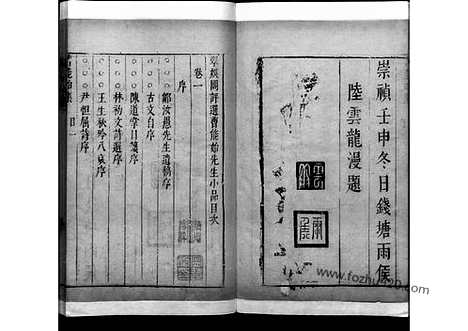 崇禎壬申冬日錢塘雨侯
陸雲龍漫題
翠娛閣評選曹能始先生小品目次
卷一
序
鄒汝愚先生遺稿序
古文自序
陳道掌日箋序
林初文詩選序
王生秋吟八哀序
尹恒屈詩序
目一
www.fozhu920.com